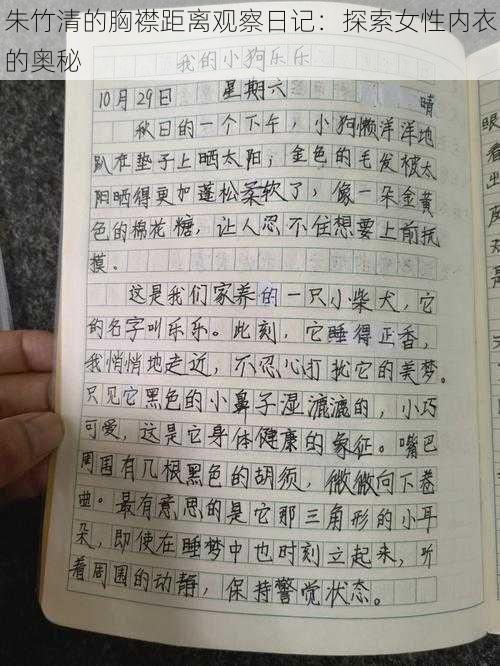 朱竹清的胸襟距离观察日记：探索女性内衣
的奥秘
我的小狗乐乐
10月29日 星期六 晴
秋日的一个下午，小狗懒洋洋地
趴在垫子上晒太阳；金色的毛发被太
阳晒得更加蓬松柔软了，像一朵金黄
色的棉花糖，让人忍不住想要上前抚
摸。
这是我们家养的一只小柴犬，它
的名字叫乐乐。此刻，它睡得正香，
我悄悄地走近，不忍心打扰它的美梦。
只见它黑色的小鼻子湿漉漉的，小巧
可爱，这是它身体健康的象征。嘴巴
周围有几根黑色的胡须，微微向下卷
曲。最有意思的是它那三角形的小耳
朵，即使在睡梦中也时刻立起来，听
着周围的动静，保持警觉状态。
眼
看
出